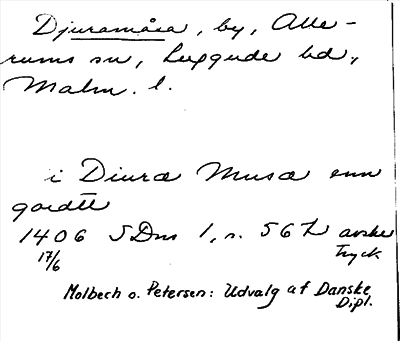 Djuramåsa, by, Alle-
rums sn, Luggude hd,
Malm. l.
i Diuræ Musæ enn
gardtt
1406 SDns 1, n. 567 avskr
17/6 tryck
Molbech o. Petersen: Udvalg af Danske
Dipl.